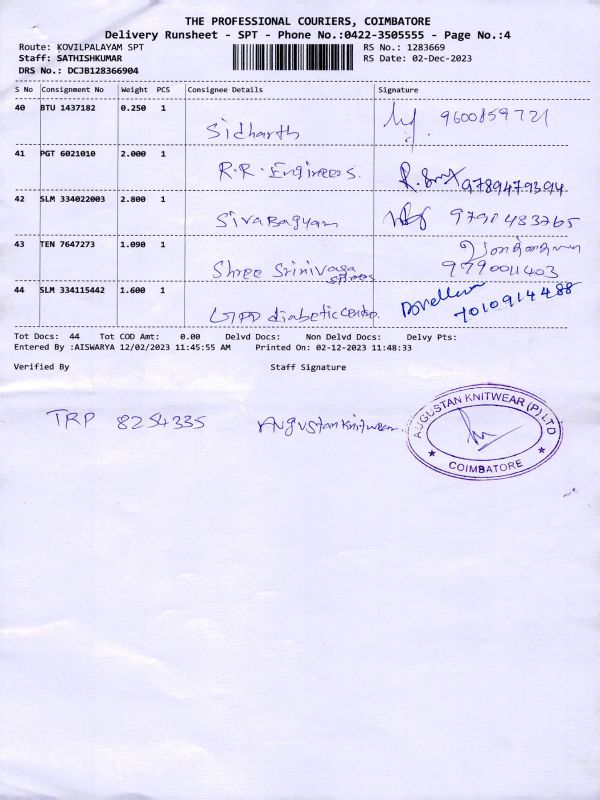 THE PROFESSIONAL COURIERS, COIMBATORE
Delivery Runsheet - SPT - Phone No.:0422-3505555 - Page No.:4
Route: KOVILPALAYAM SPT RS No.: 1283669
Staff: SATHISHKUMAR RS Date: 02-Dec-2023
DRS No.: DCJB128366904
S No Consignment No Weight PCS Consignee Details Signature
40 BTU 1437182 0.250 1
Sidharth 9600859721
41 PGT 6021010 2.000 1
R.R. Engineers. 9789479394
42 SLM 334022003 2.800 1
Sivabagyam 9791483765
43 TEN 7647273 1.090 1
Shree Srinivasa 9790011403
stores
44 SLM 334115442 1.600 1
diabetic centre. 7010914488
Tot Docs: 44 Tot COD Amt: 0.00 Delvd Docs: Non Delvd Docs: Delvy Pts:
Entered By :AISWARYA 12/02/2023 11:45:55 AM Printed On: 02-12-2023 11:48:33
Verified By Staff Signature
TRP 8254335 Augustan Knitwear.
AUGUSTAN KNITWEAR (P) LTD
COIMBATORE